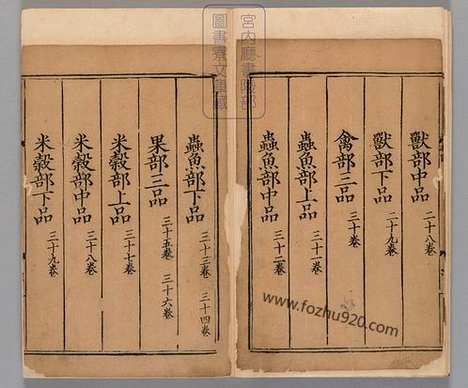 獸部中品 二十八卷
獸部下品 二十九卷
禽部三品 三十卷
蟲魚部上品 三十一卷
蟲魚部中品 三十二卷
蟲魚部下品 三十三卷 三十四卷
果部三品 三十五卷 三十六卷
米穀部上品 三十七卷
米穀部中品 三十八卷
米穀部下品 三十九卷
宮内廳書陵部
圖書寮文庫藏
www.fozhu920.com